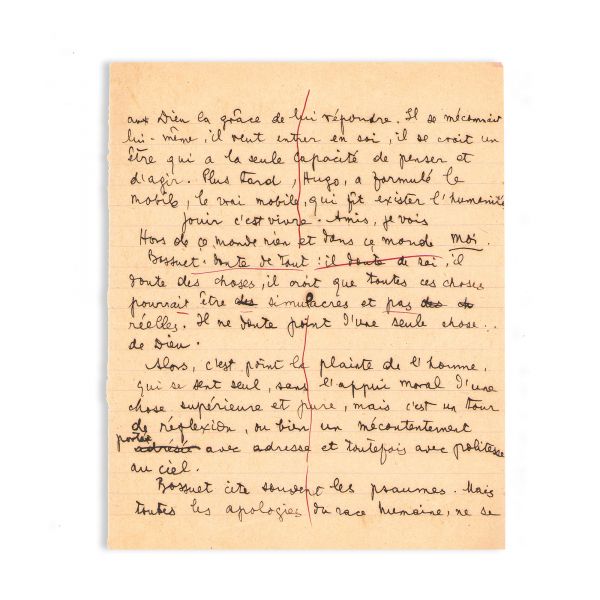 aux Dieu la grâce de lui répondre. Il se méconnait
lui-même, il veut entrer en soi, il se croit un
être qui a la seule capacité de penser et
d'agir. Plus tard, Hugo, a formulé le
mobile, le vrai mobile, qui fit exister l'humanité
Jouir c'est vivre. Amis, je vois
Hors de ce monde rien et dans ce monde moi.
Bossuet doute de tout : il doute de soi, il
doute des choses, il croit que toutes ces choses
pourrait être des simulacres et pas des ch
réelles. Il ne doute point d'une seule chose..
de Dieu.
Alors, c'est point la plainte de l'homme
qui se sent seul, sans l'appui moral d'une
chose supérieure et pure, mais c'est un tour
de réflexion, ou bien un mécontentement
portée
adressée avec adresse et toutefois avec politesse
au ciel.
Bossuet cite souvent les psaumes. Mais
toutes les apologies du race humaine, ne se